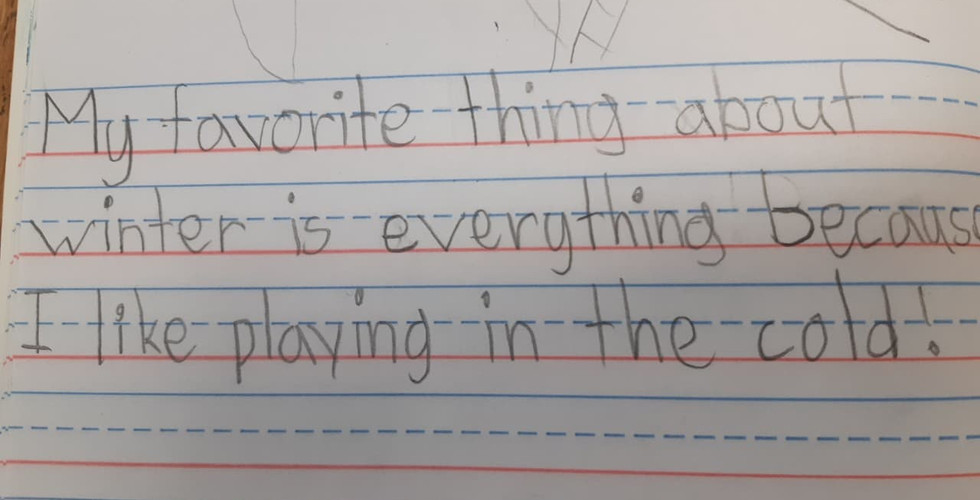 My favorite thing about
winter is everything because
I like playing in the cold!